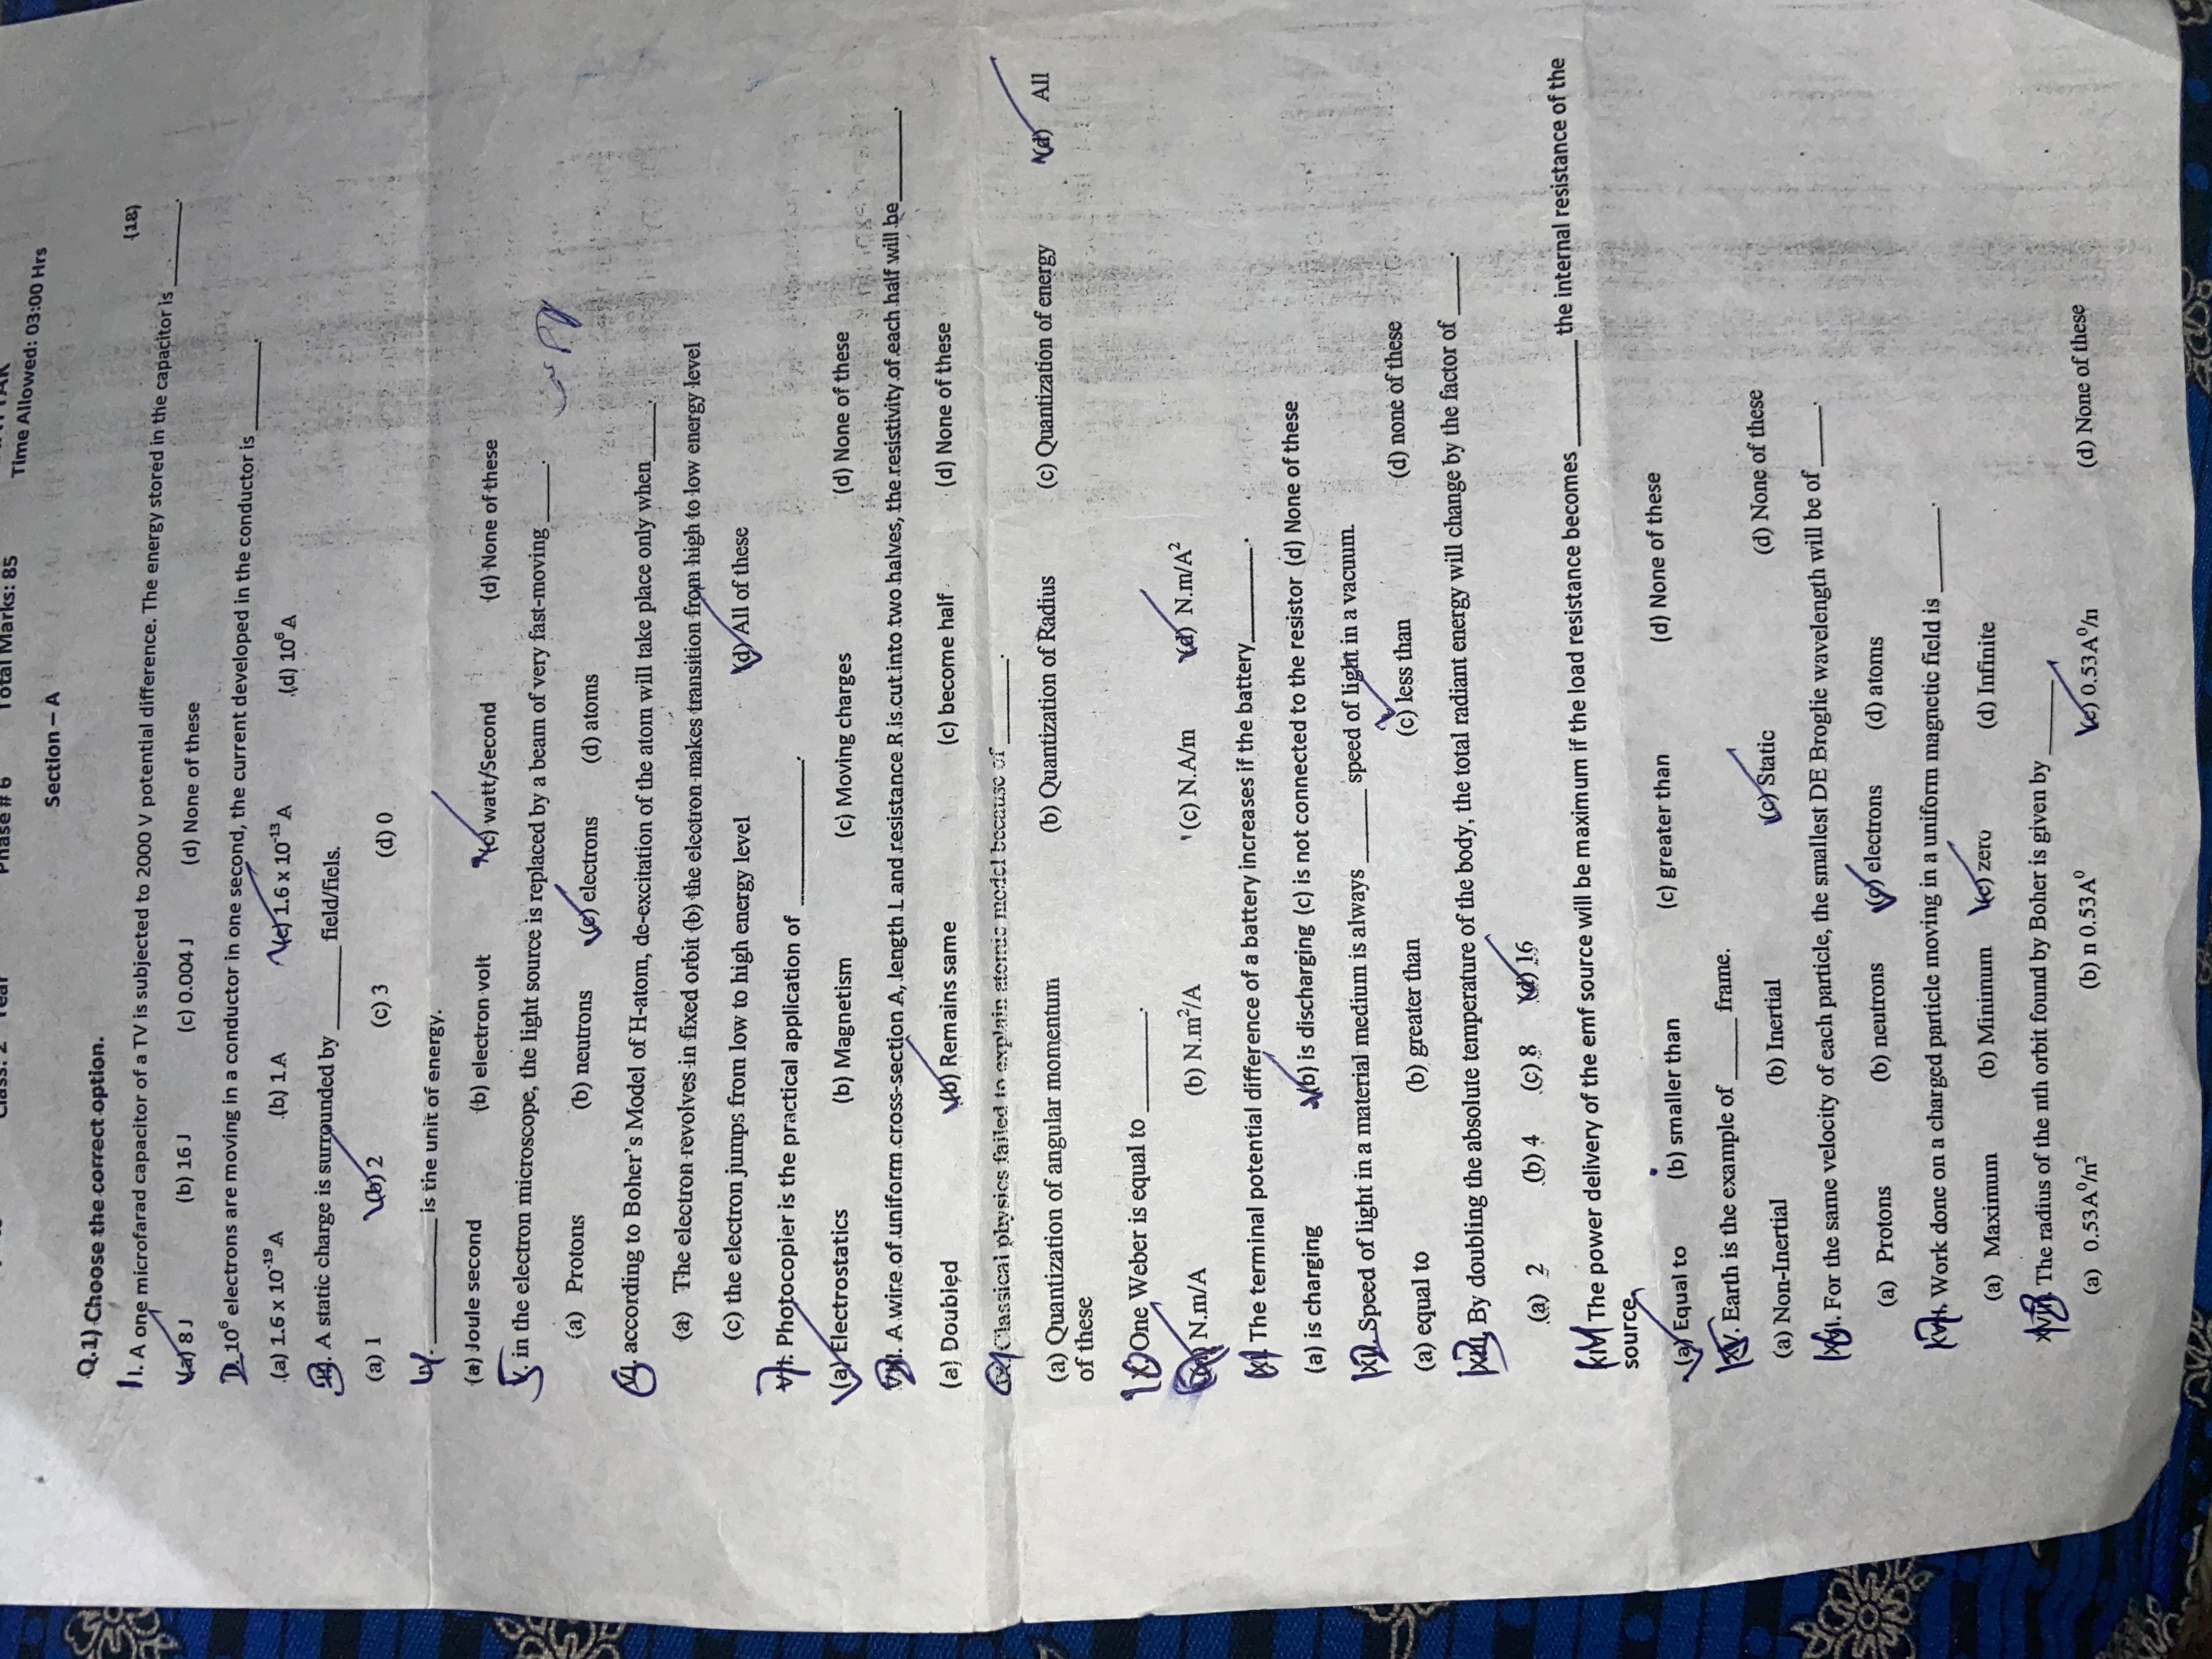 Phase # 6 Total Marks: 85 Time Allowed: 03:00 Hrs
Section – A
Q.1) Choose the correct option. (18)
1. A one microfarad capacitor of a TV is subjected to 2000 V potential difference. The energy stored in the capacitor is ______.
(a) 8 J (b) 16 J (c) 0.004 J (d) None of these
10⁶ electrons are moving in a conductor in one second, the current developed in the conductor is ______.
(a) 1.6 x 10⁻¹⁹ A (b) 1A (c) 1.6 x 10⁻¹³ A (d) 10⁶ A
A static charge is surrounded by ______ field/fiels.
(a) 1 (b) 2 (c) 3 (d) 0
______ is the unit of energy.
(a) Joule second (b) electron volt (c) watt/Second (d) None of these
in the electron microscope, the light source is replaced by a beam of very fast-moving ____.
(a) Protons (b) neutrons (c) electrons (d) atoms
according to Boher's Model of H-atom, de-excitation of the atom will take place only when____.
(a) The electron revolves in fixed orbit (b) the electron makes transition from high to low energy level
(c) the electron jumps from low to high energy level (d) All of these
Photocopier is the practical application of ______.
(a) Electrostatics (b) Magnetism (c) Moving charges (d) None of these
A wire of uniform cross-section A, length L and resistance R is cut into two halves, the resistivity of each half will be______.
(a) Doubled (b) Remains same (c) become half (d) None of these
Classical physics failed to explain atomic model because of ______.
(a) Quantization of angular momentum (b) Quantization of Radius (c) Quantization of energy (d) All
of these
10 One Weber is equal to ______.
(a) N.m/A (b) N.m²/A (c) N.A/m (d) N.m/A²
The terminal potential difference of a battery increases if the battery______.
(a) is charging (b) is discharging (c) is not connected to the resistor (d) None of these
Speed of light in a material medium is always ______ speed of light in a vacuum.
(a) equal to (b) greater than (c) less than (d) none of these
By doubling the absolute temperature of the body, the total radiant energy will change by the factor of ____.
(a) 2 (b) 4 (c) 8 (d) 16
The power delivery of the emf source will be maximum if the load resistance becomes ______ the internal resistance of the
source.
(a) Equal to (b) smaller than (c) greater than (d) None of these
Earth is the example of ____ frame.
(a) Non-Inertial (b) Inertial (c) Static (d) None of these
For the same velocity of each particle, the smallest DE Broglie wavelength will be of ____.
(a) Protons (b) neutrons (c) electrons (d) atoms
Work done on a charged particle moving in a uniform magnetic field is ______.
(a) Maximum (b) Minimum (c) zero (d) Infinite
The radius of the nth orbit found by Boher is given by ______
(a) 0.53A⁰/n² (b) n 0.53A⁰ (c) 0.53A⁰/n (d) None of these